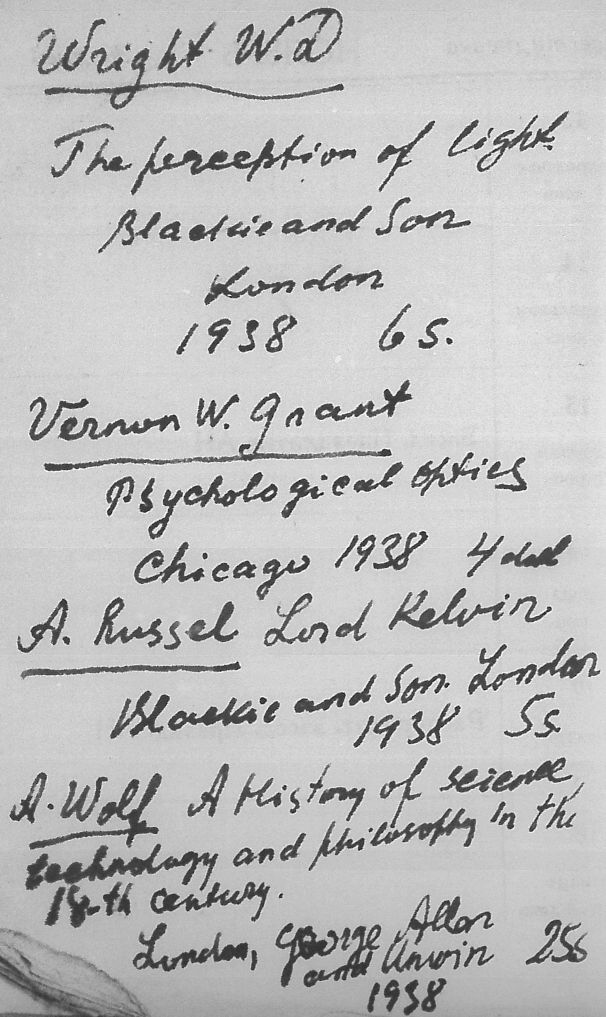 Wright W.D
The perception of light.
Blackie and Son
London
1938 6 s.
Vernon W. Grant
Psychological optics
Chicago 1938 4 doll
A. Russel Lord Kelvin
Blackie and Son. London
1938 5s.
A. Wolf A History of science,
technology and philosophy in the
18-th century.
London, George Allen
and Unwin 25s
1938